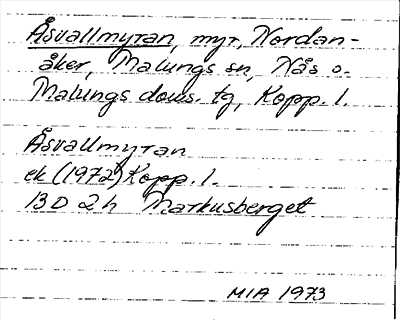 Åsvallmyran, myr, Nordan-
åker, Malungs sn, Nås o.
Malungs doms. tg, Kopp. l.
Åsvallmyran
ek (1972) Kopp. l.
13D 2h Markusberget
MIA 1973